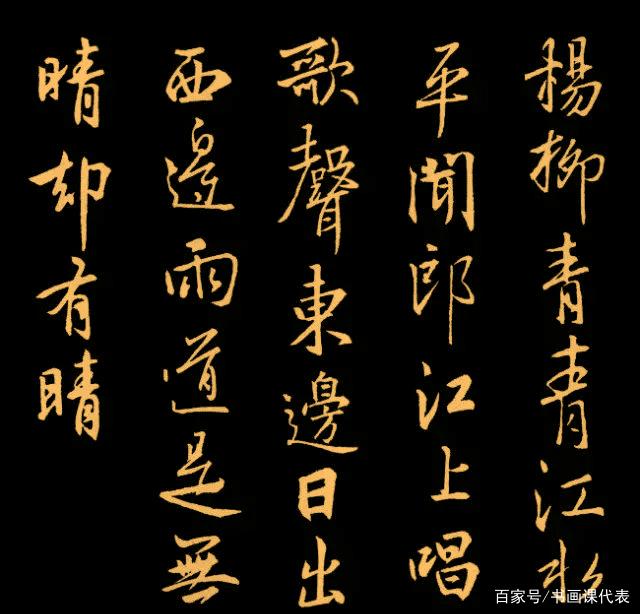 楊柳青青江水
平聞郎江上唱
歌聲東邊日出
西邊雨道是無
晴却有晴
百家号/书画课代表